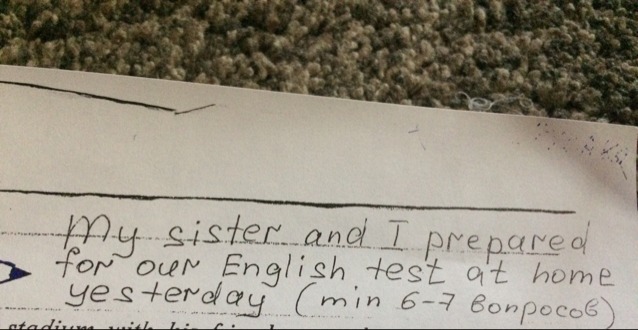 My sister and I prepared
for our English test at home
yesterday (min 6-7 вопросов)
stadium with his